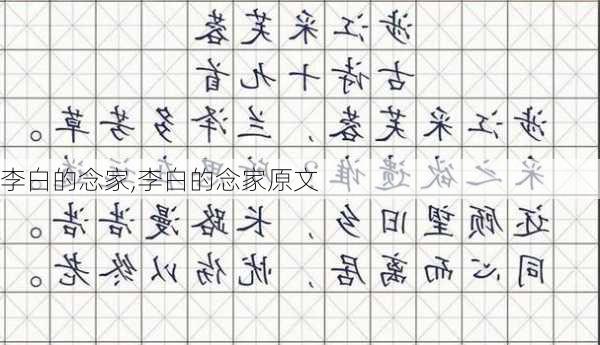 涉江采芙蓉
古诗十九首
涉江采芙蓉，兰泽多芳草。
采之欲遗谁？
李白的念家,李白的念家原文
还顾望旧乡，长路漫浩浩。
同心而离居，忧伤以终老。